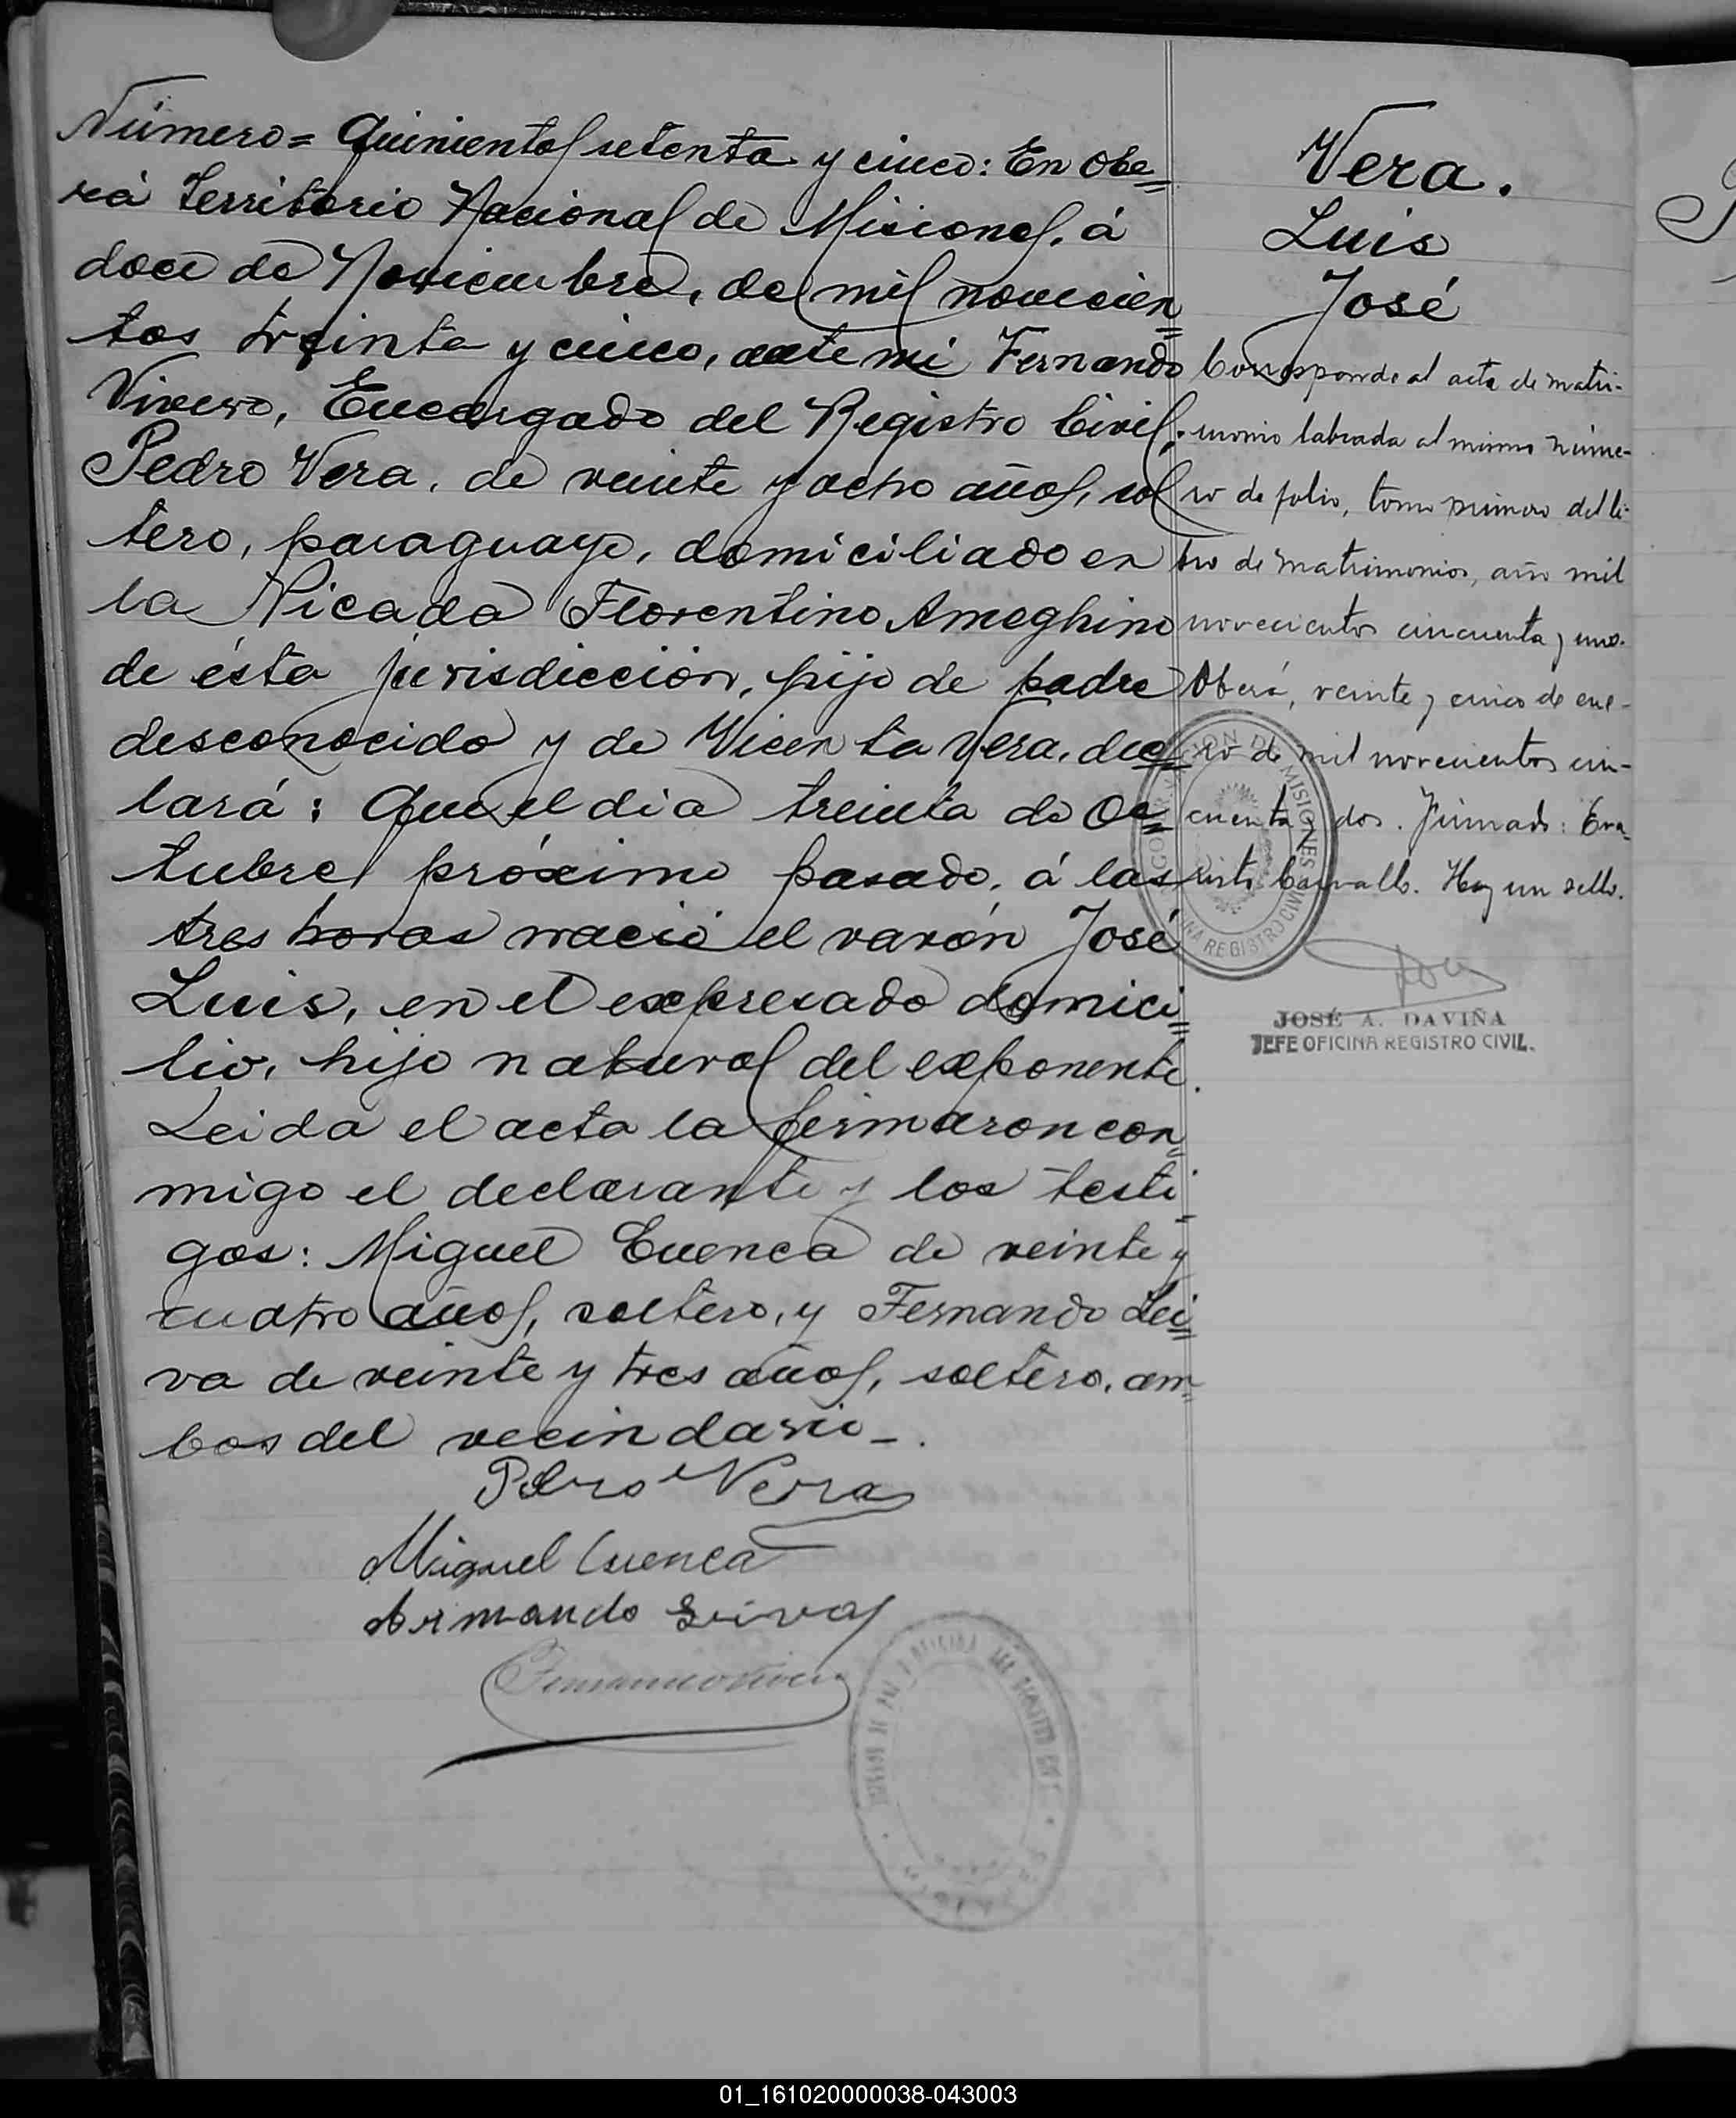 Número = Quinientos setenta y cinco: En Obe=
rá Territorio Nacional de Misiones, á
doce de Noviembre, de mil novecien=
tos treinta y cinco, ante mi Fernando
Vivero, Encargado del Registro Civil;
Pedro Vera, de veinte y ocho años, sol
tero, paraguayo, domiciliado en
la Picada Florentino Ameghino
de ésta jurisdicción, hijo de padre
desconocido y de Vicenta Vera, dec=
lará: Que el dia treinta de Oc=
tubre próximo pasado, á las
tres horas nació el varón José
Luis, en el expresado domici=
lio, hijo natural del exponente.
Leida el acta la firmaron con=
migo el declarante y los testi=
gos: Miguel Cuenca de veinte y
cuatro años, soltero, y Fernando Lei=
va de veinte y tres años, soltero, am=
bos del vecindario_.
Pedro Vera
Miguel Cuenca
Armando Leiva
Fernando Vivero
Vera.
Luis
José
Corresponde al acta de matri-
monio labrada al mismo núme-
ro de folio, tomo primero del li-
bro de matrimonios, año mil
novecientos cincuenta y uno.
Oberá, veinte y cinco de ene-
ro de mil novecientos cin-
cuenta y dos. Firmado: Eva-
risto Carvallo. Hay un sello.
GOBERNACION DE MISIONES
OFICINA REGISTRO CIVIL
JOSÉ A. DAVIÑA
JEFE OFICINA REGISTRO CIVIL.
JUZGADO DE PAZ Y OFICINA DEL REGISTRO CIVIL
01_161020000038-043003